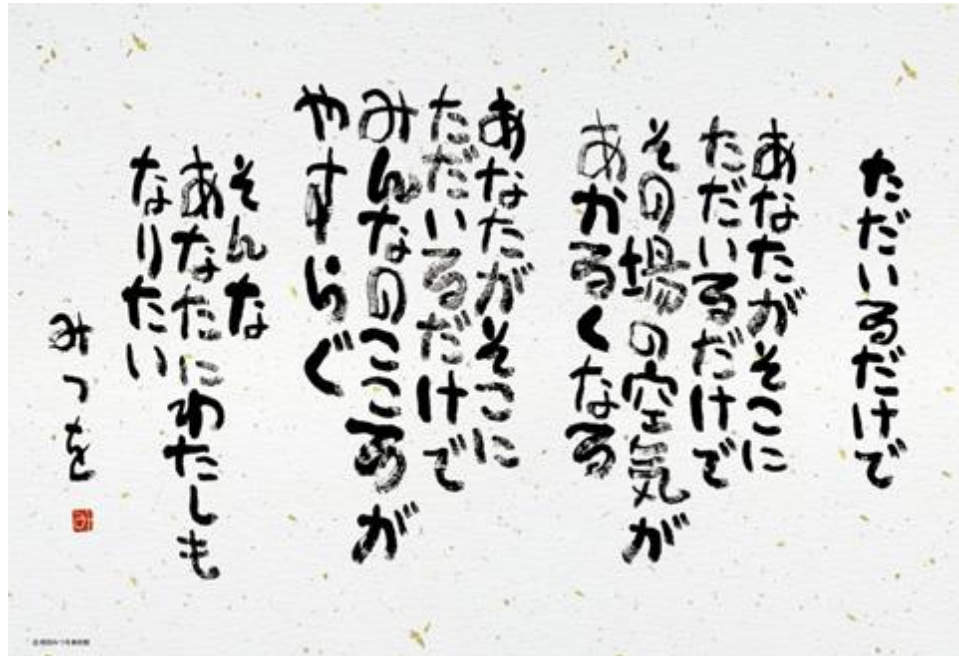 ただいるだけで
あなたがそこに
ただいるだけで
その場の空気が
あかるくなる
あなたがそこに
ただいるだけで
みんなのこころが
やすらぐ
そんな
あなたにわたしも
なりたい
みつを
み
©相田みつを美術館